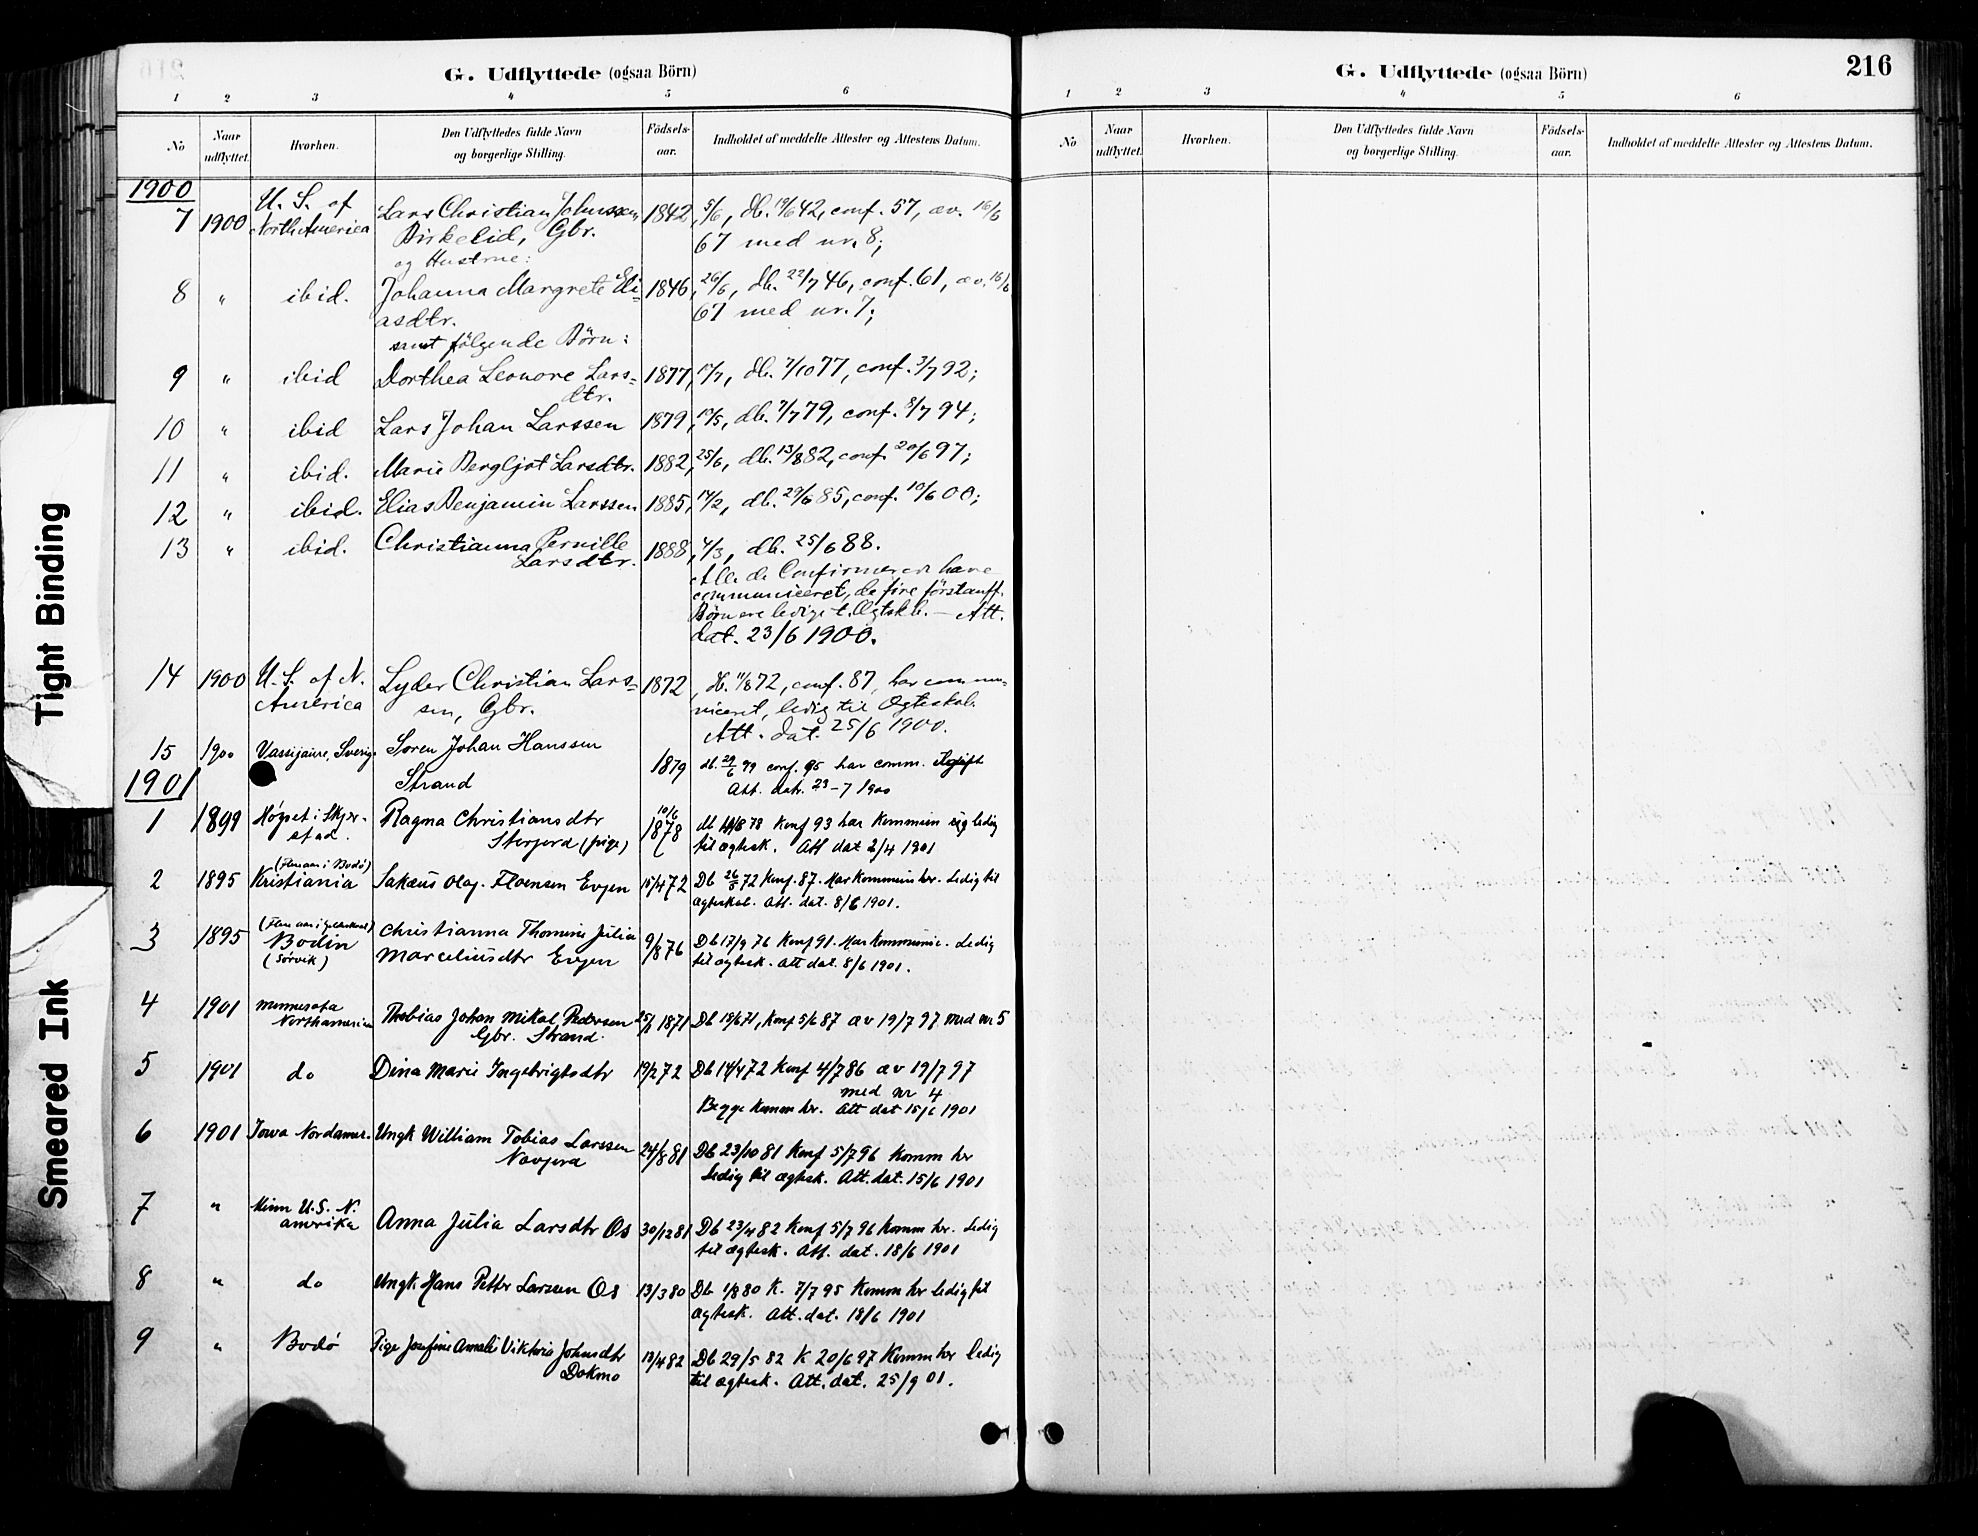 G. Udflyttede (ogsaa Börn)
1 2 3 4 5 6
No Naar udflyttet. Hvorhen. Den Udflyttedes fulde Navn og borgerlige Stilling. Födsels-aar. Indholdet af meddelte Attester og Attestens Datum.
1900
7 1900 U. S. of North America Lars Christian Johnssen 1842, 5/6, db. 19/6 42, conf. 57, æv. 16/6
Birkelid, Gbr. 67 med nr. 8;
og Hustrue:
8 " ibid. Johanna Margrete Eli- 1846, 26/6, db. 22/7 46, conf. 61, æv. 16/6
asdtr. 67 med nr. 7;
samt følgende Børn:
9 " ibid Dorthea Leonore Lars= 1877, 17/7, db. 7/10 77, conf. 3/7 92;
dtr.
10 " ibid Lars Johan Larssen 1879, 17/5, db. 7/7 79, conf. 8/7 94;
11 " ibid. Marie Bergljot Larsdtr. 1882, 25/6, db. 13/8 82, conf. 20/6 97;
12 " ibid. Elias Benjamin Larssen 1885, 14/2, db. 29/6 85, conf. 10/6 00;
13 " ibid. Christianna Pernille 1888, 4/3, db. 25/6 88.
Larsdtr.
Alle de Confirmerede have
communiceret, de fire förstanff.
Børn ere ledige t. Ægtskb. — Att.
dat. 23/6 1900.
14 1900 U. S. of N. Lyder Christian Lars= 1872, db. 11/8 72, conf. 87, har commu-
America sen, Gbr. niceret, ledig til Ægteskab.
Att. dat. 25/6 1900.
15 1900 Vassijaure, Sverig Soren Johan Hanssen
Strand 1879 db. 29/6 79 conf. 95 har comm.
Att. datr. 23-7 1900
1901
1 1899 i Skjer- Ragna Christiansdtr 10/6 db 78 Konf 93 har Kommun og ledig
stad. Storjord (pige) 1878 til ægtesk. Att dat 2/4 1901
(flere aar i Bodø)
2 1895 Kristiania Sakæus Olaj. Evjen 15/4 72 Db 26/5 72 Konf. 87. Har Kommun her. Ledig til
ægteskab. Att. dat. 8/6 1901.
3 1895 Bodin Christianna Thomine Julia 9/8 76 Db 17/9 76 Konf 91. Har Kommunic. Ledig
(Sørvik) Marceliusdtr Evjen til ægtesk. Att dat. 8/6 1901.
4 1901 Minnesota Thobias Johan Mikal Pedersen 1871 Db 18/6 71, Konf 5/6 87 æv 19/7 97 med nr 5
Northamerica Gbr. Strand.
5 1901 do Dina Marie Ingebrigtsdtr 19/2 72 Db 14/4 72 Konf 4/7 86 æv 19/7 97
med nr 4
Begge Komm her. Att dat 15/6 1901
6 1901 Iowa Nordamer. Ungk William Tobias Larssen 24/8 81 Db 23/10 81 Konf 5/7 96 Komm her
Navjord Ledig til ægtesk. Att. dat. 15/6 1901
7 " Minn U. S. N. Anna Julia Larsdtr Os 30/12 81 Db 23/4 82 Konf 5/7 96 Komm her. Ledig
amerika til ægtesk. Att. dat. 18/6 1901
8 " do Ungk Hans Petter Larssen Os 13/3 80 Db 1/8 80 K. 7/7 95 Komm her ledig til
ægtesk. Att. dat. 18/6 1901
9 " Bodø Pige Josefine Amali Viktoria Johnsdtr 13/4 82 Db 29/5 82 K 20/6 97 Komm her ledig
Dokmo til ægtesk. Att. dat. 25/9 01.
G. Udflyttede (ogsaa Börn) 216
1 2 3 4 5 6
No Naar udflyttet. Hvorhen. Den Udflyttedes fulde Navn og borgerlige Stilling. Födsels-aar. Indholdet af meddelte Attester og Attestens Datum.
Tight Binding
Smeared Ink